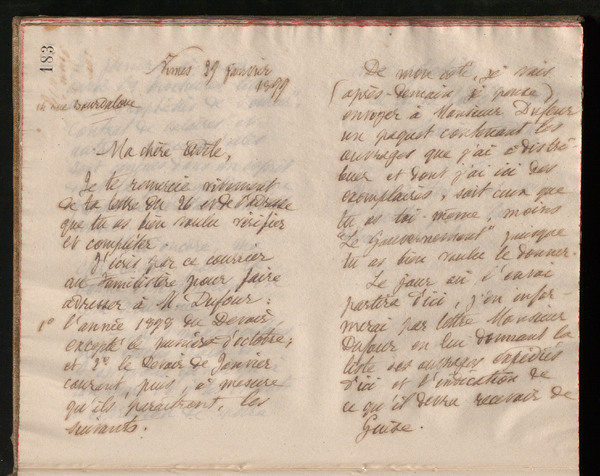 183
Nîmes 29 janvier
1899
14 rue Bourdaloue
Ma chère
Je te remercie vivement
de ta lettre du 26 et de l'adresse
que tu as bien voulu vérifier
et compléter.
J'écris par ce courrier
au familistère pour faire
adresser à Mr Dufour :
1° l'année 1898 du Devoir,
excepté le numéro d'octobre ;
et 2° le Devoir de Janvier
courant, puis, à mesure
qu'ils paraîtront, les
suivants.
De mon côté, je vais
(après-demain je pense)
envoyer à Monsieur Dufour
un paquet contenant les
ouvrages que j'ai à distri-
buer et dont j'ai ici des
exemplaires, soit ceux que
tu as toi-même, moins
"Le Gouvernement" puisque
tu as bien voulu le donner.
Le jour où l'envoi
partira d'ici, j'en infor-
merai par lettre Monsieur
Dufour en lui donnant la
liste des ouvrages expédiés
d'ici et l'indication de
ce qu'il devra recevoir de
Guise.